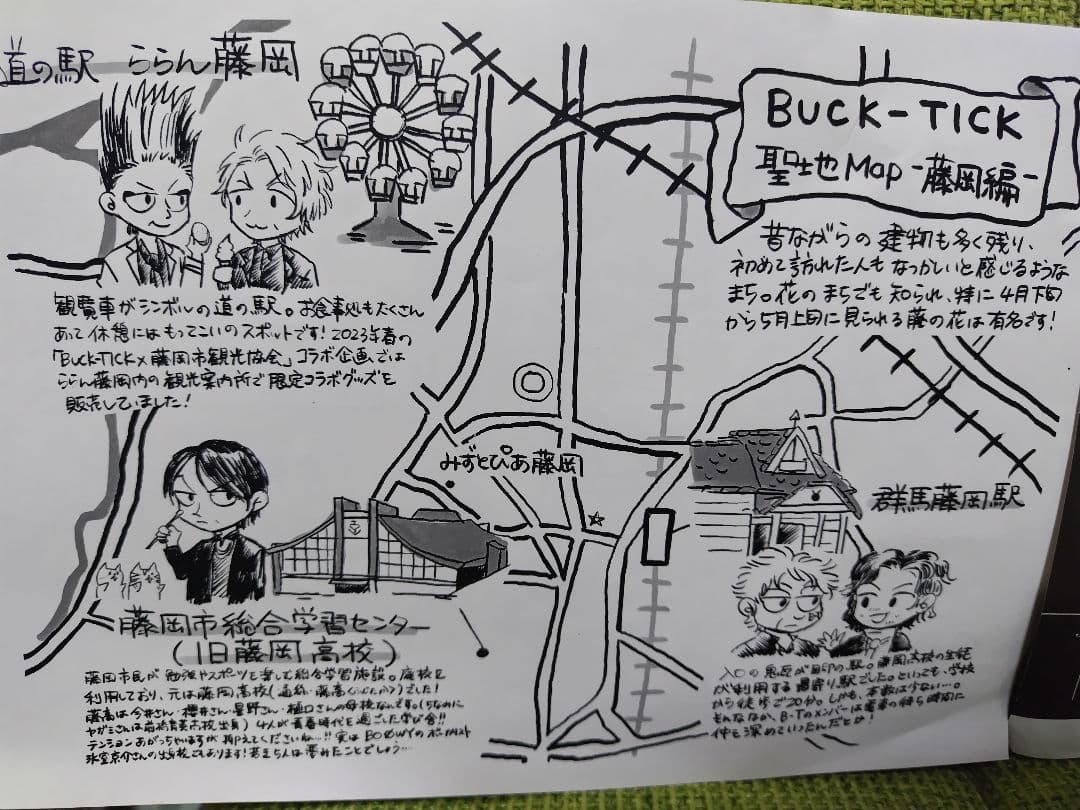 道の駅 ららん藤岡
BUCK-TICK
聖地Map -藤岡編-
昔ながらの建物も多く残り、
初めて訪れた人もなつかしいと感じるような
まち。花のまちでも知られ、特に4月下旬
から5月上旬に見られる藤の花は有名です!
観覧車がシンボルの道の駅。お食事処もたくさん
あって休憩にはもってこいのスポットです!2023年春の
「BUCK-TICK×藤岡市観光協会」コラボ企画では
ららん藤岡内の観光案内所で限定コラボグッズを
販売していました!
みずとぴあ藤岡
群馬藤岡駅
藤岡市総合学習センター
(旧藤岡高校)
藤岡市民が勉強やスポーツを楽しむ総合学習施設。廃校を
利用しており、元は藤岡高校(通称、藤高)でした!
藤高は今井さん・櫻井さん・星野さん・樋口さんの母校なんです。(ちなみに
ヤガミさんは前橋育英高校出身)4人が青春時代を過ごした学び舎!!
テンションあがっちゃいますが抑えてくださいね…!!実はBOØWYのボーカリスト
氷室京介さんの出身校でもあります!若き5人は夢みたことでしょう…
入口の鬼瓦が目印の駅。藤岡高校の生徒
が利用する最寄り駅でした。といっても、学校
から徒歩で20分。しかも、本数は少ない…。
そんななか、B-Tのメンバーは電車の待ち時間に
仲を深めていったんだとか!